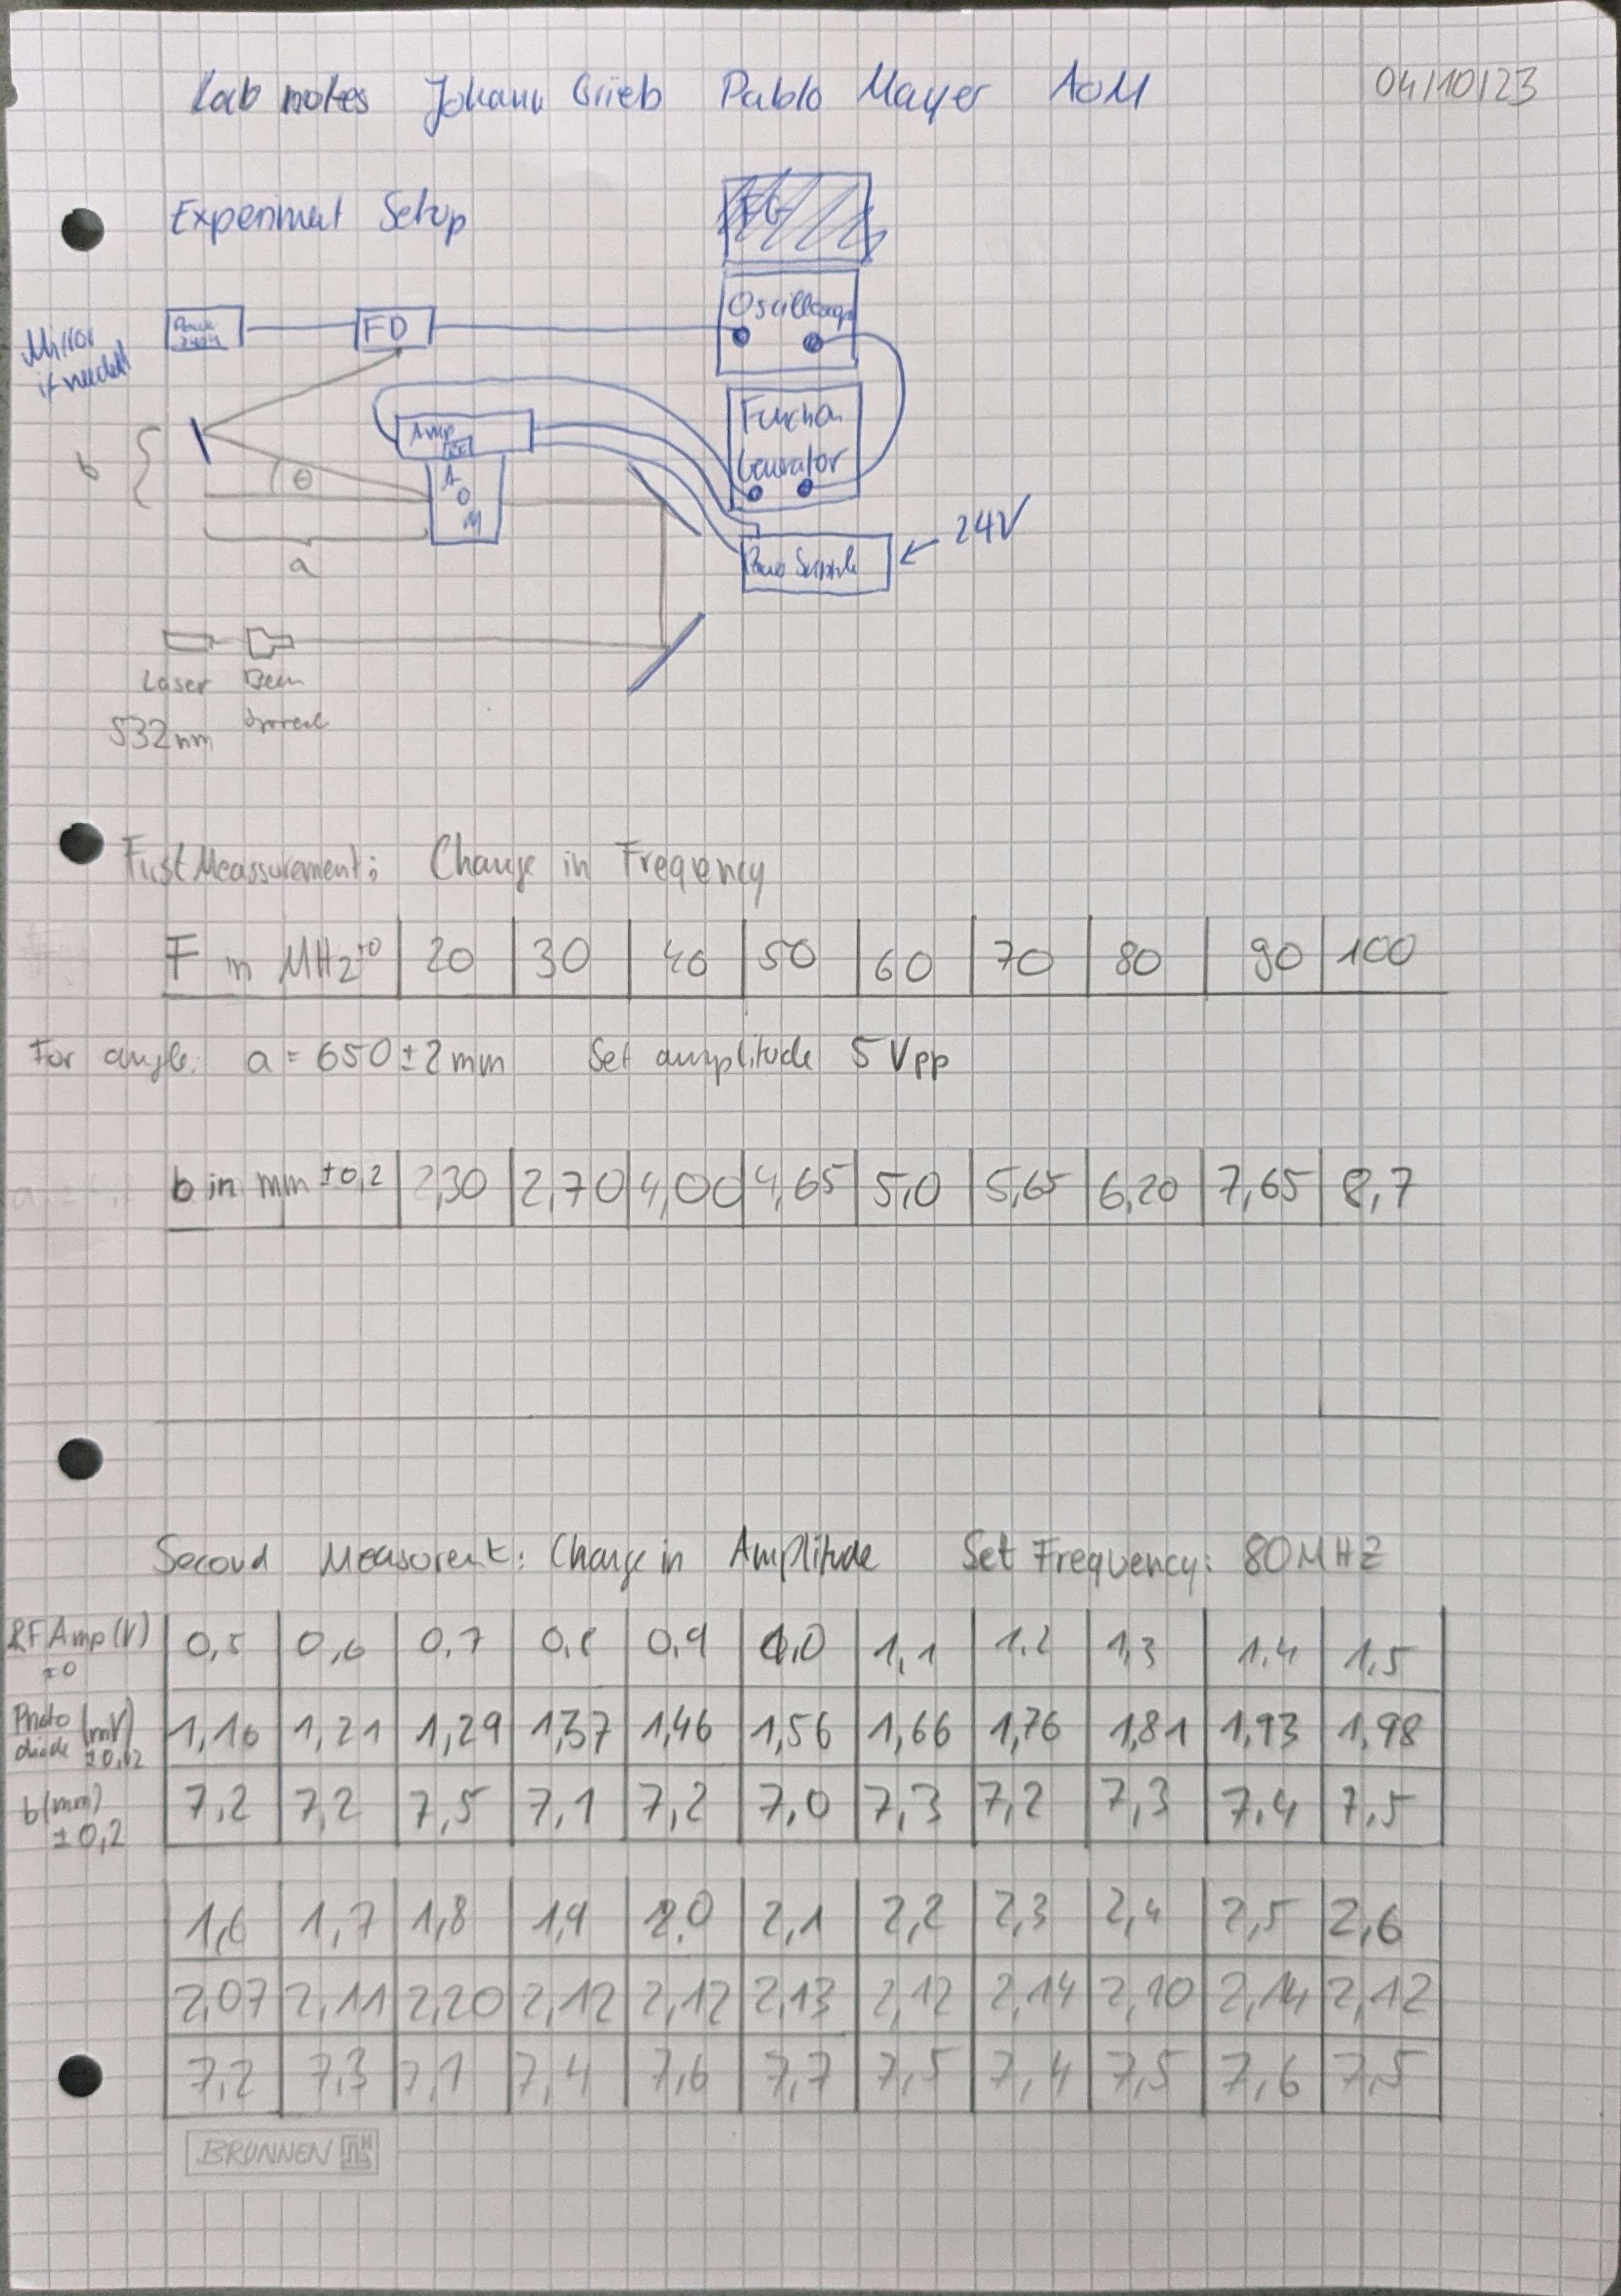 Lab notes Johann Grieb Pablo Mayer AOM 04/10/23
Experiment Setup
Oscilloscop
Power
FD
Mirror
if needed
Function
Generator
Amp
RF
b
θ
A
O
M
a
Power Supply
24V
Laser Beam
532nm
First Meassurement: Change in Freqency
F in MHz ±0 20 30 40 50 60 70 80 90 100
For angle: a = 650 ± 2 mm Set amplitude 5 Vpp
b in mm ±0,2 2,30 2,70 4,00 4,65 5,0 5,65 6,20 7,65 8,7
Second Measorent: Change in Amplitude Set Frequency: 80 MHz
RF Amp (V) ±0 0,5 0,6 0,7 0,8 0,9 1,0 1,1 1,2 1,3 1,4 1,5
Photo diode (mV) ±0,02 1,16 1,21 1,29 1,37 1,46 1,56 1,66 1,76 1,81 1,93 1,98
b (mm) ±0,2 7,2 7,2 7,5 7,1 7,2 7,0 7,3 7,2 7,3 7,4 7,5
1,6 1,7 1,8 1,9 2,0 2,1 2,2 2,3 2,4 2,5 2,6
2,07 2,11 2,20 2,12 2,12 2,13 2,12 2,14 2,10 2,14 2,12
7,2 7,3 7,1 7,4 7,6 7,7 7,5 7,4 7,5 7,6 7,5
BRUNNEN